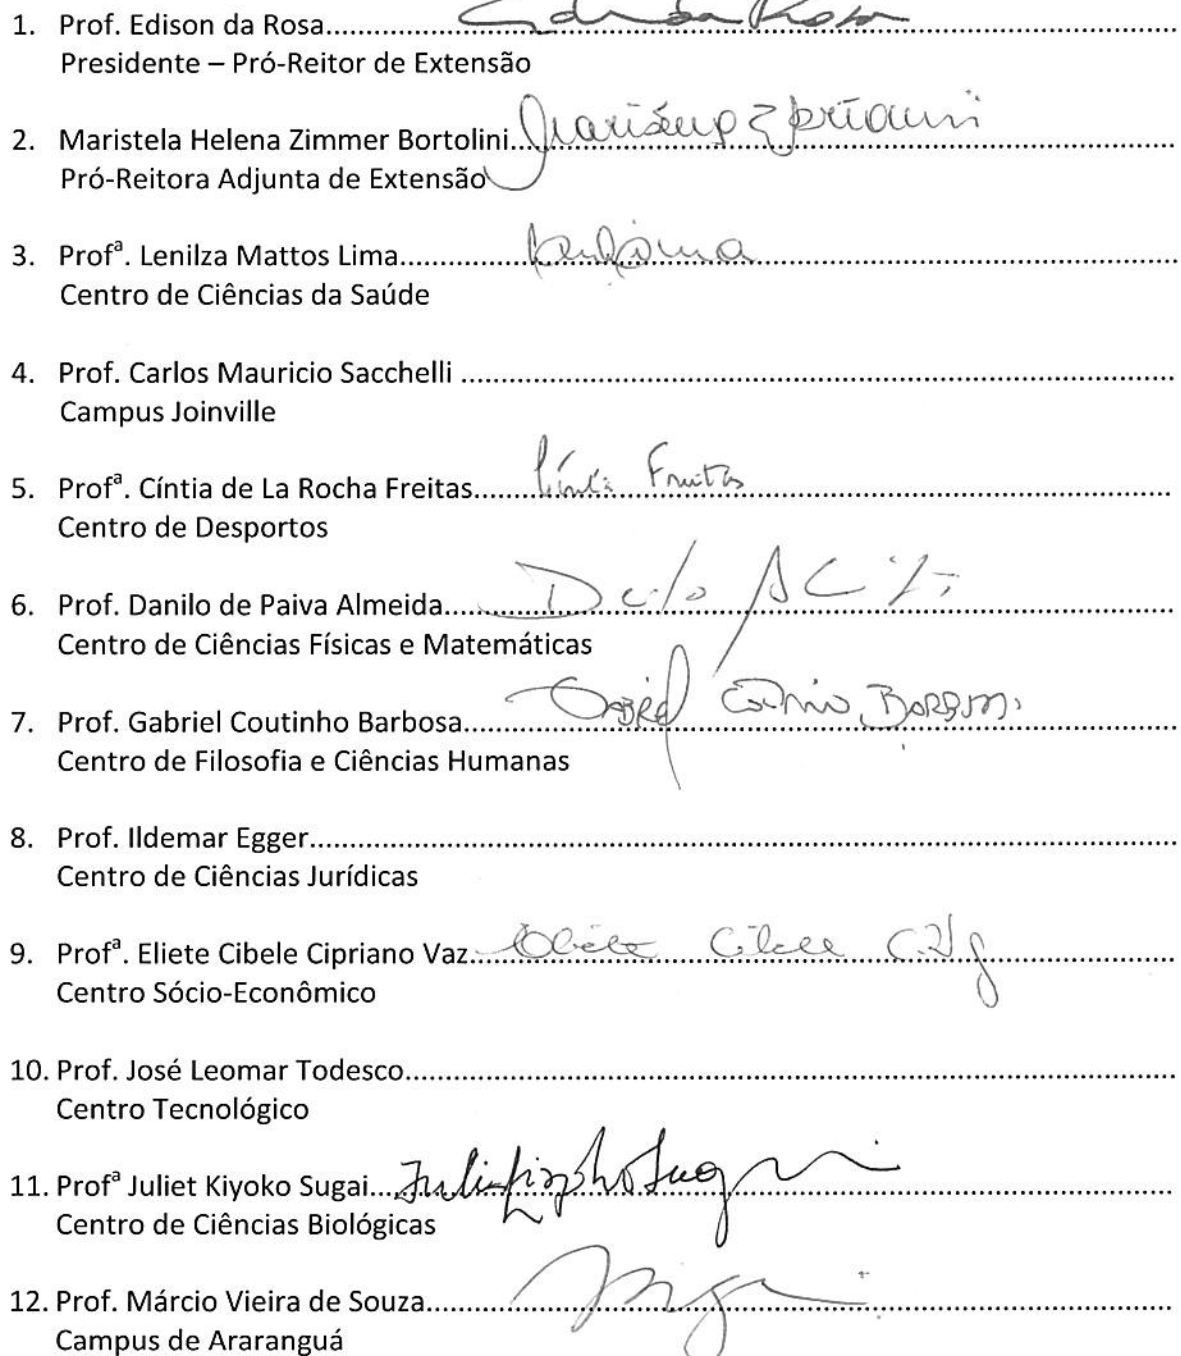 1. Prof. Edison da Rosa.................... Edison da Rosa
Presidente – Pró-Reitor de Extensão
2. Maristela Helena Zimmer Bortolini....................
Pró-Reitora Adjunta de Extensão
3. Profª. Lenilza Mattos Lima....................
Centro de Ciências da Saúde
4. Prof. Carlos Mauricio Sacchelli ....................
Campus Joinville
5. Profª. Cíntia de La Rocha Freitas.................... Cíntia Freitas
Centro de Desportos
6. Prof. Danilo de Paiva Almeida....................
Centro de Ciências Físicas e Matemáticas
7. Prof. Gabriel Coutinho Barbosa.................... Gabriel Coutinho Barbosa
Centro de Filosofia e Ciências Humanas
8. Prof. Ildemar Egger....................
Centro de Ciências Jurídicas
9. Profª. Eliete Cibele Cipriano Vaz.................... Eliete Cibele
Centro Sócio-Econômico
10. Prof. José Leomar Todesco....................
Centro Tecnológico
11. Profª Juliet Kiyoko Sugai....................
Centro de Ciências Biológicas
12. Prof. Márcio Vieira de Souza....................
Campus de Araranguá